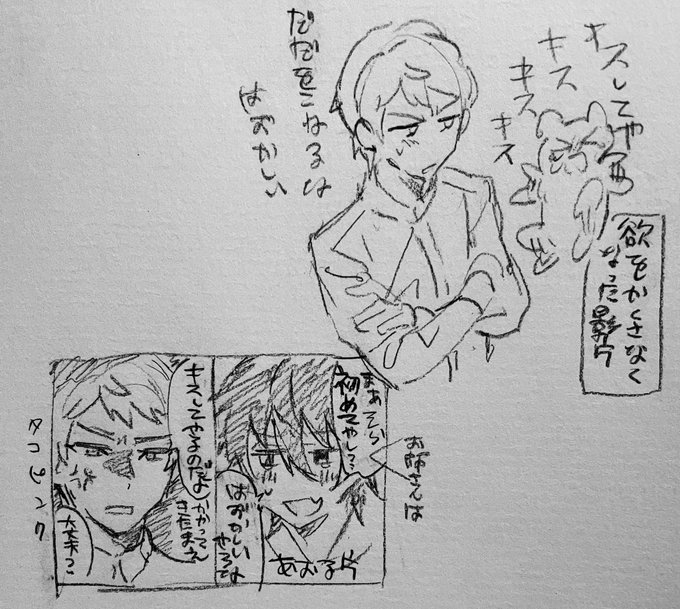 キスしてや
キス
キス
キス
欲をかくさなく
なった影片
だだをこねるな
はずかしい
まあそら
初めてやし?
お師さんは
はずかしい
やろな
あおる片
キスしてやるのだよ
かかって
きたまえ
タコピンク